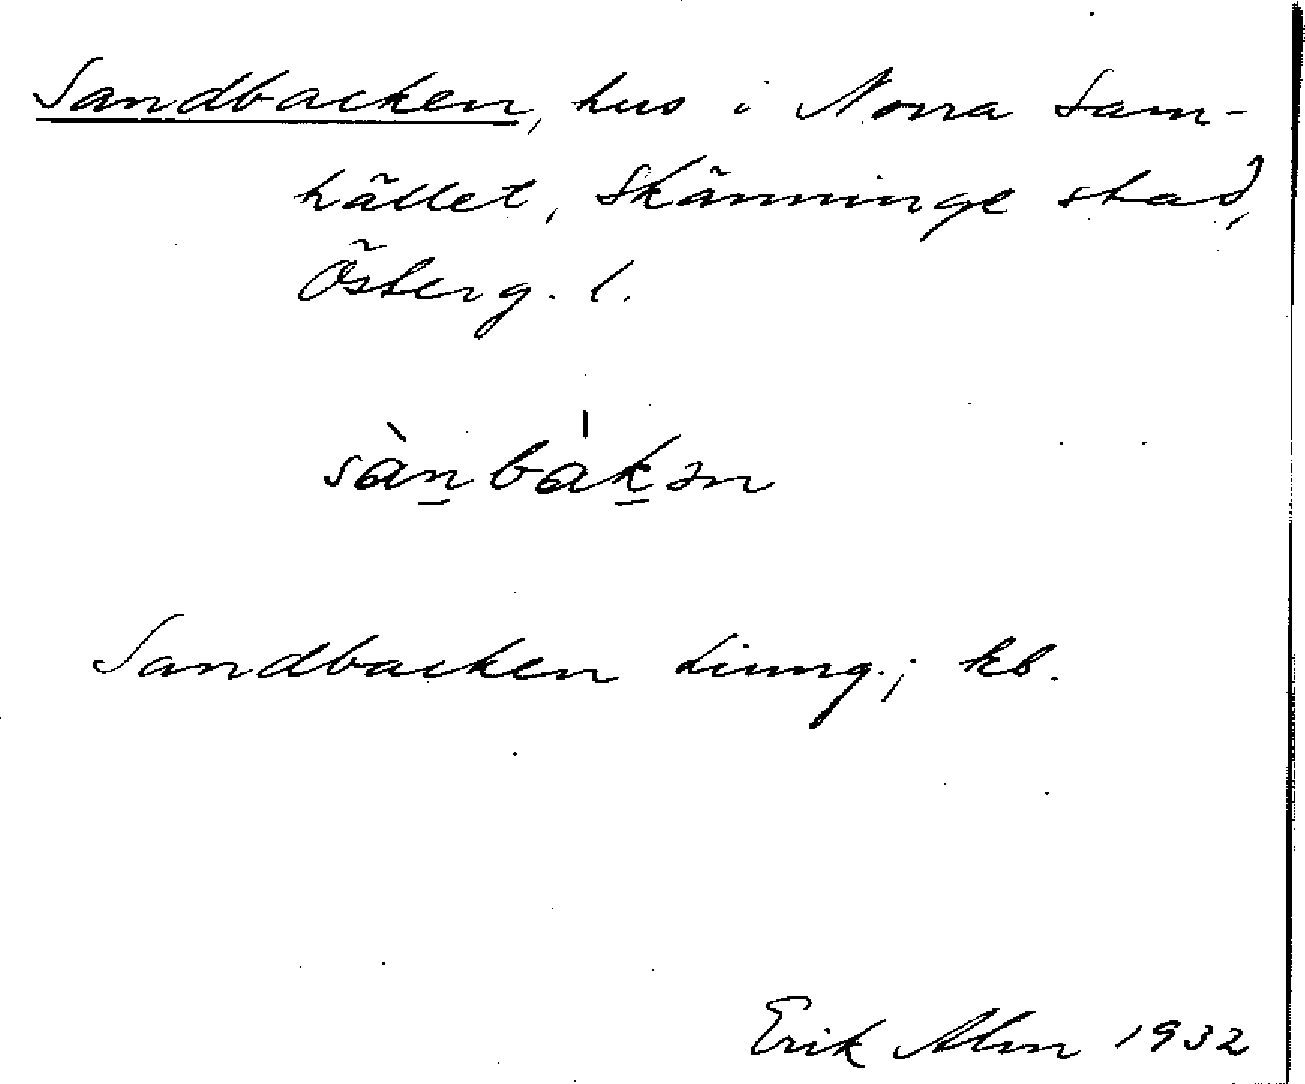 Sandbacken, hus i Norra Sam-
hället, Skänninge stad,
Österg. l.
sànbákən
Sandbacken Liung.; kb.
Erik Alm 1932